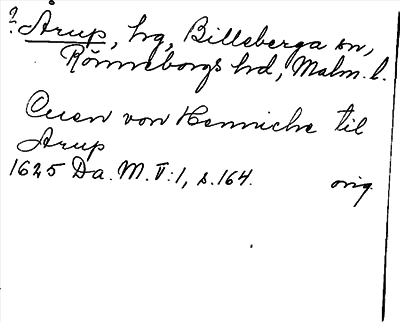 ? Årup, hg, Billeberga sn,
Rönnebergs hd, Malm. l.
Cuen von Henniche til
Arup
1625 Da. M. V:1, s. 164. orig.